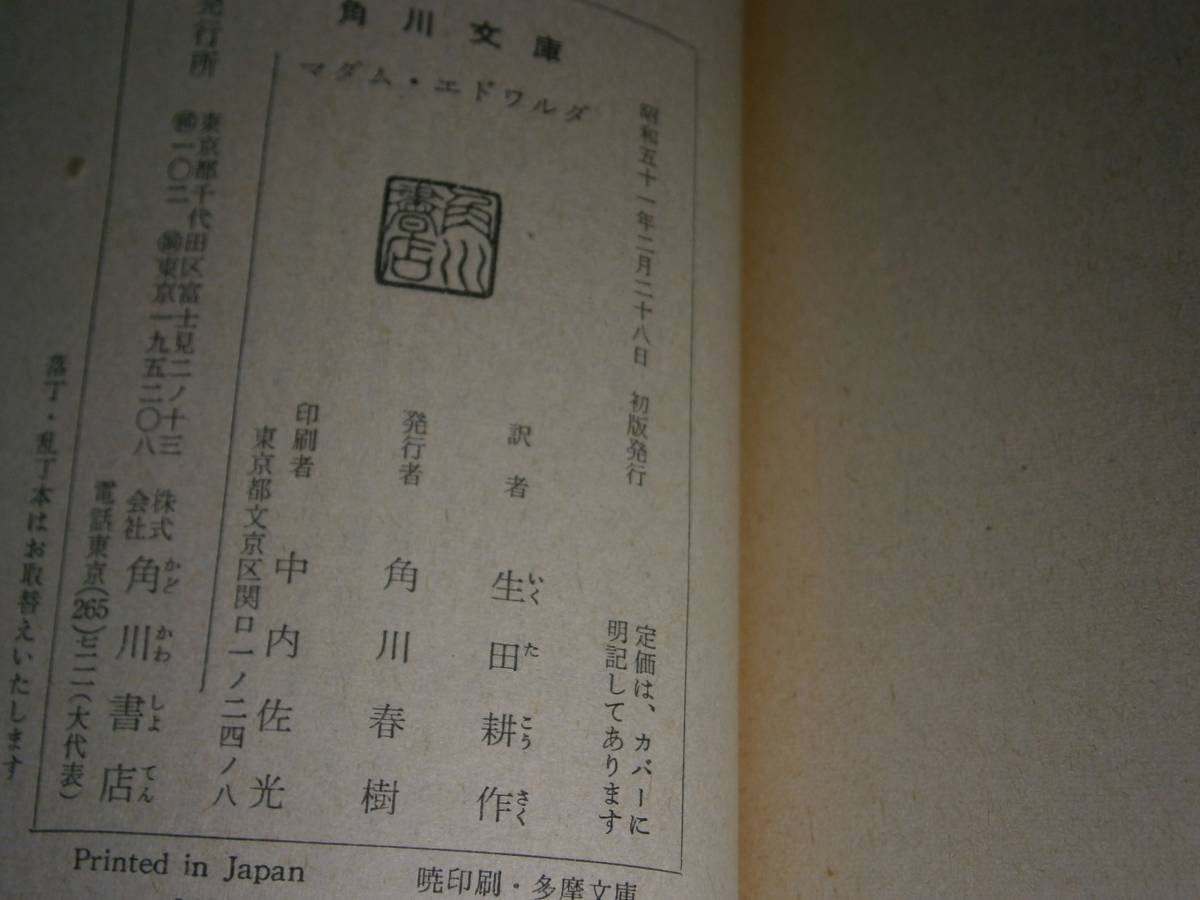 角川文庫
マダム・エドワルダ
昭和五十一年二月二十八日 初版発行
定価は、カバーに
明記してあります
角川書店
訳者 生田耕作
いくたこうさく
発行者 角川春樹
印刷者 中内佐光
東京都文京区関口一ノ二四ノ八
発行所
東京都千代田区富士見二ノ十三
一〇二 東京一九五二〇八
株式会社 角川書店
かどかわしよてん
電話東京(265)
(大代表)
落丁・乱丁本はお取替えいたします
Printed in Japan
暁印刷・多摩文庫